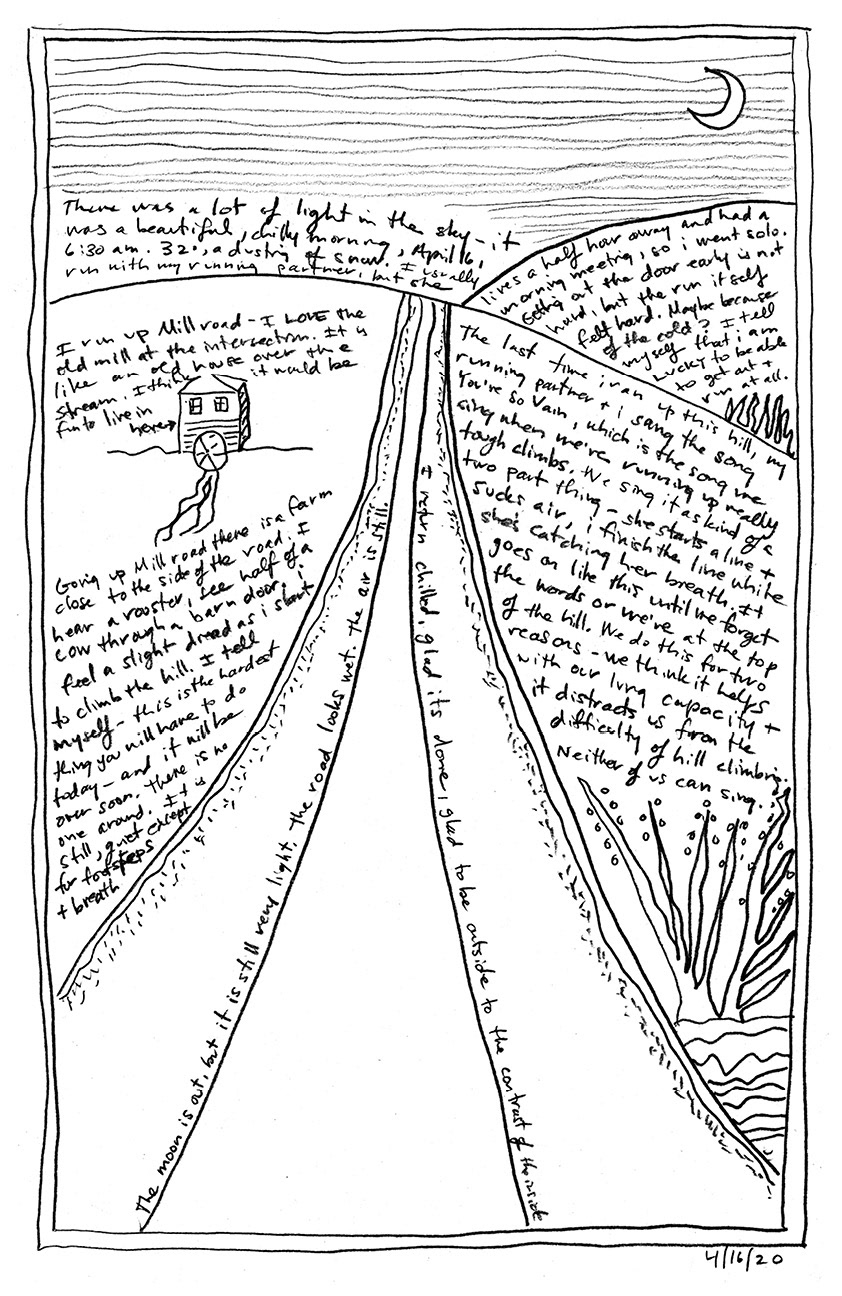 There was a lot of light in the sky - it
was a beautiful, chilly morning, April 16,
6:30 am. 32°, a dusting of snow. I usually
run with my running partner, but she
lives a half hour away and had a
morning meeting, so i went solo.
Getting out the door early is not
hard, but the run itself
felt hard. Maybe because
of the cold? I tell
myself that i am
lucky to be able
to get out +
run at all.
I run up Mill road - I LOVE the
old mill at the intersection. It is
like an old house over the
stream. I think it would be
fun to live in
here→
Going up Mill road there is a farm
close to the side of the road. I
hear a rooster, see half of a
cow through a barn door. i
feel a slight dread as i start
to climb the hill. I tell
myself - this is the hardest
thing you will have to do
today - and it will be
over soon. There is no
one around. It is
still, quiet except
for footsteps
+ breath
The last time i ran up this hill, my
running partner + i sang the song
You're so Vain, which is the song we
sing when we're running up really
tough climbs. We sing it as kind of a
two part thing - she starts a line +
sucks air, i finish the line while
she's catching her breath. It
goes on like this until we forget
the words or we're at the top
of the hill. We do this for two
reasons - we think it helps
with our lung capacity +
it distracts us from the
difficulty of hill climbing.
Neither of us can sing.
The moon is out, but it is still very light. The road looks wet. The air is still.
I return chilled, glad its done, glad to be outside to the contrast of the inside
4/16/20